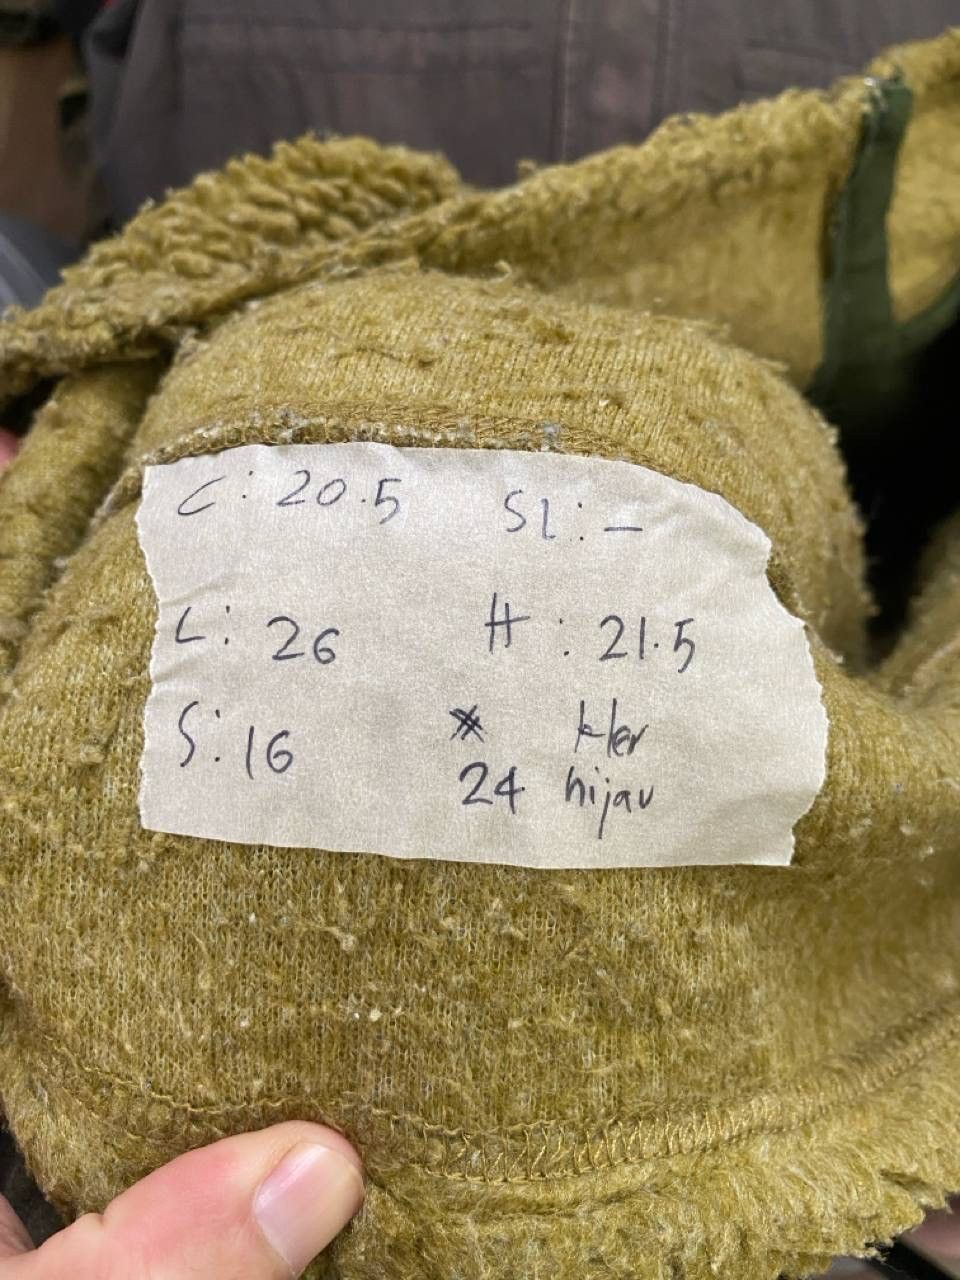 C: 20.5 SL: -
L: 26 H: 21.5
S: 16 *
24 hijau